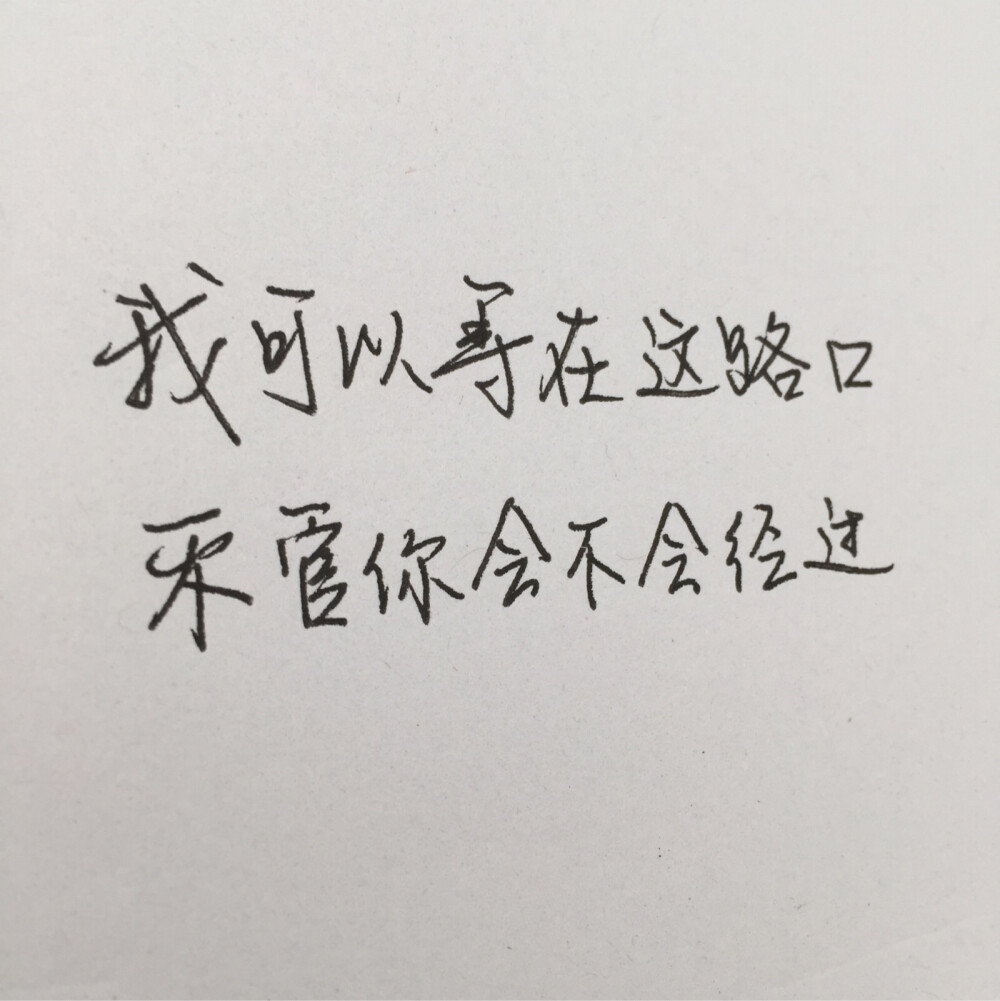 我可以寻在这路口
来管你会不会经过